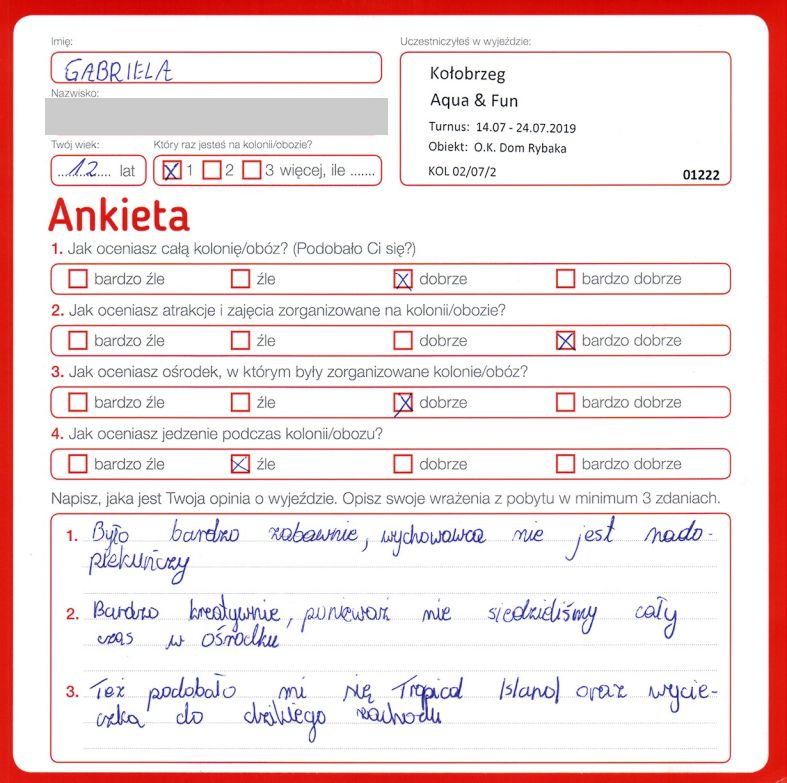 Imię:
GABRIELA
Nazwisko:
Twój wiek:
12 lat
Który raz jesteś na kolonii/obozie?
1 2 3 więcej, ile .......
Uczestniczyłeś w wyjeździe:
Kołobrzeg
Aqua & Fun
Turnus: 14.07 - 24.07.2019
Obiekt: O.K. Dom Rybaka
KOL 02/07/2 01222
Ankieta
1. Jak oceniasz całą kolonię/obóz? (Podobało Ci się?)
bardzo źle źle dobrze bardzo dobrze
2. Jak oceniasz atrakcje i zajęcia zorganizowane na kolonii/obozie?
bardzo źle źle dobrze bardzo dobrze
3. Jak oceniasz ośrodek, w którym były zorganizowane kolonie/obóz?
bardzo źle źle dobrze bardzo dobrze
4. Jak oceniasz jedzenie podczas kolonii/obozu?
bardzo źle źle dobrze bardzo dobrze
Napisz, jaka jest Twoja opinia o wyjeździe. Opisz swoje wrażenia z pobytu w minimum 3 zdaniach.
1. Było bardzo zabawnie, wychowawca nie jest nado-
piekuńczy
2. Bardzo kreatywnie, punieważ nie siedzieliśmy cały
czas w ośrodku
3. Też podobało mi się Tropical Island oraz wycie-
czka do dzikiego zachodu